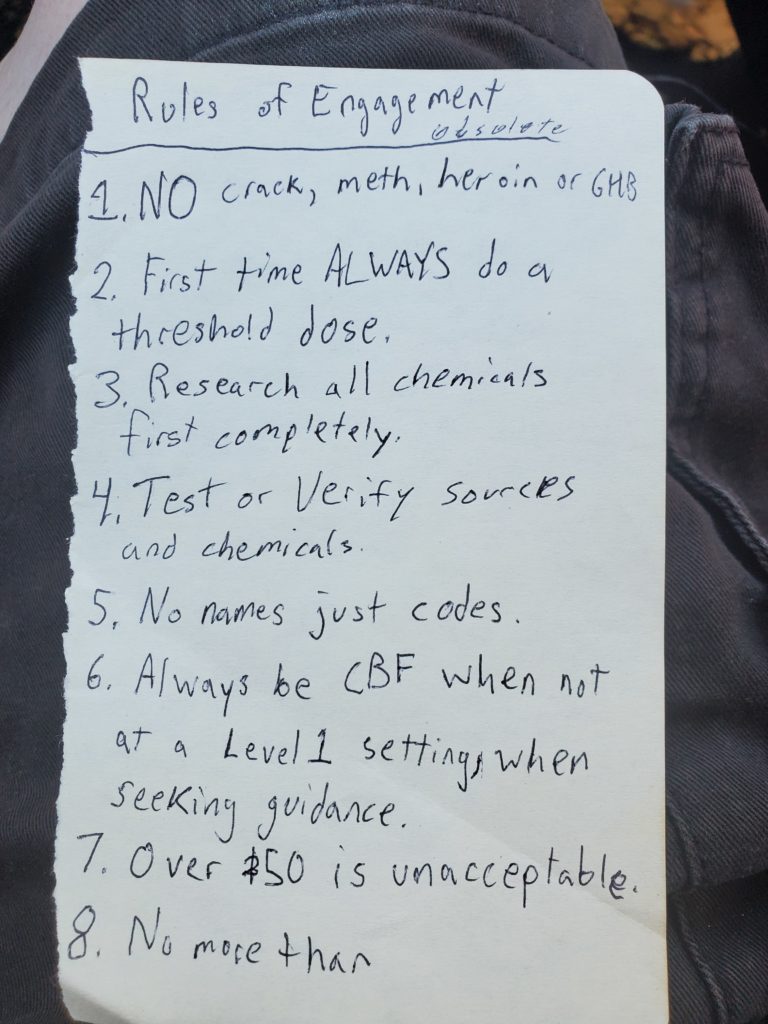 Rules of Engagement
obsolete
1. NO crack, meth, heroin or GHB
2. First time ALWAYS do a
threshold dose.
3. Research all chemicals
first completely.
4. Test or Verify sources
and chemicals.
5. No names just codes.
6. Always be CBF when not
at a Level 1 setting, when
seeking guidance.
7. Over $50 is unacceptable.
8. No more than